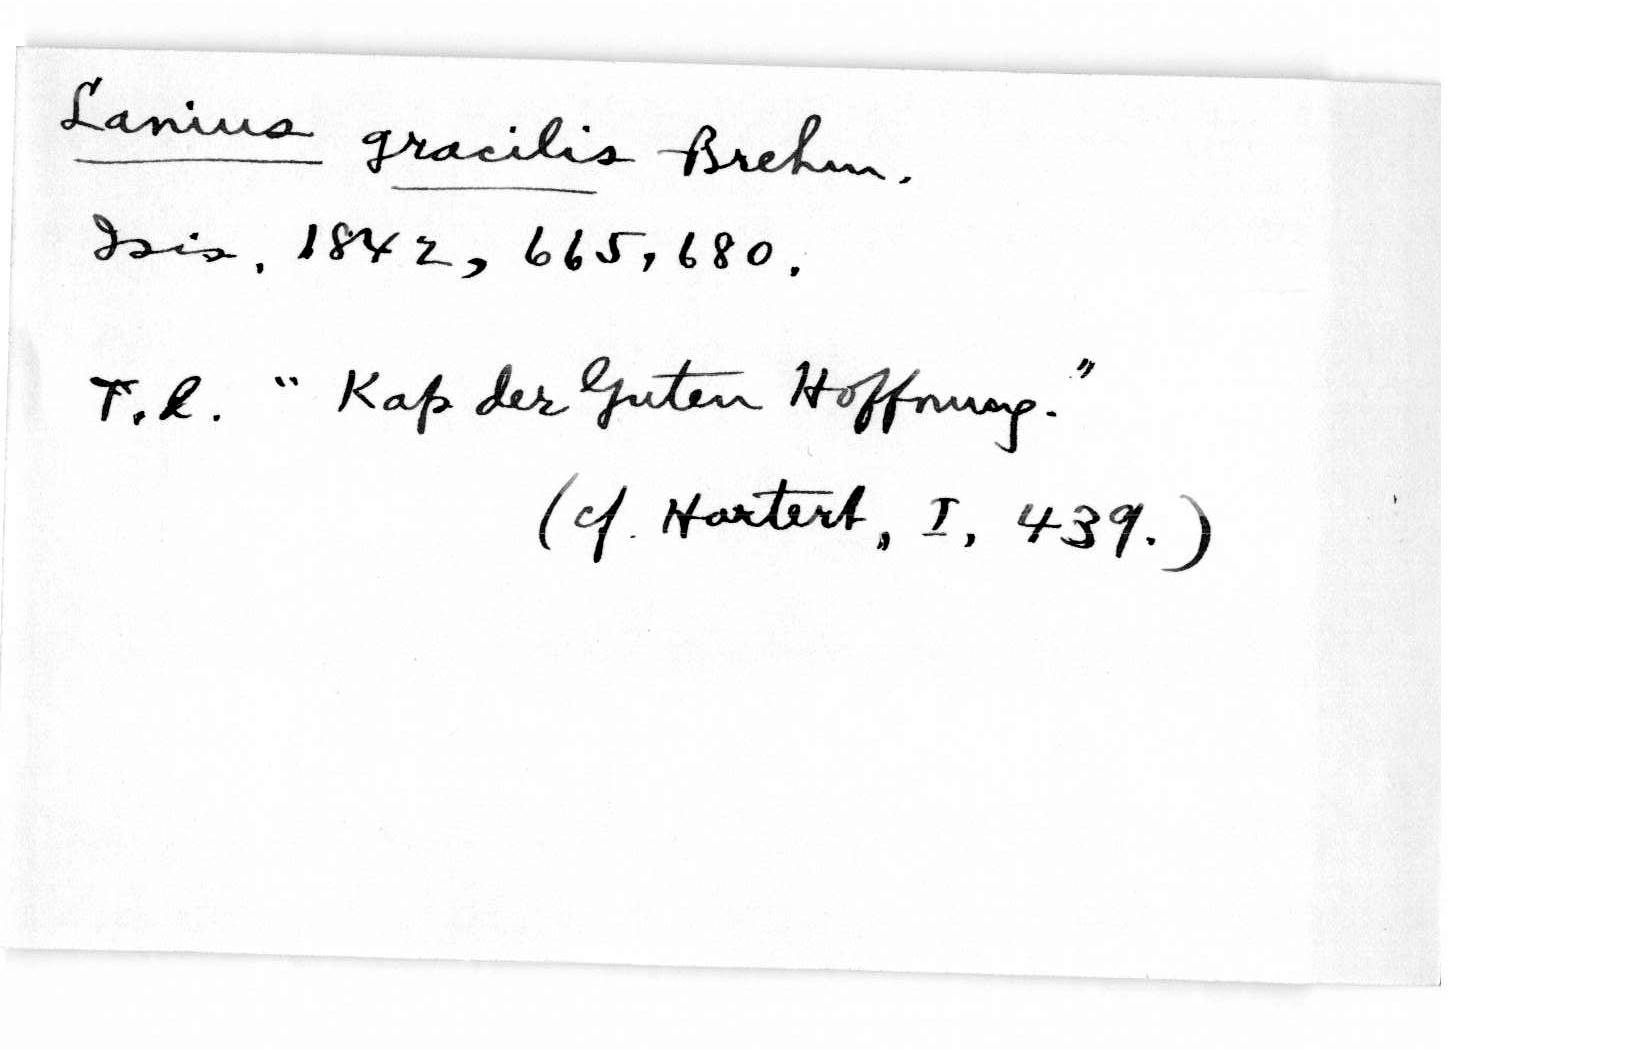 Lanius gracilis Brehm.
Isis, 1842, 665, 680.
T.l. "Kap der Guten Hoffnung."
(cf. Hartert, I, 439.)